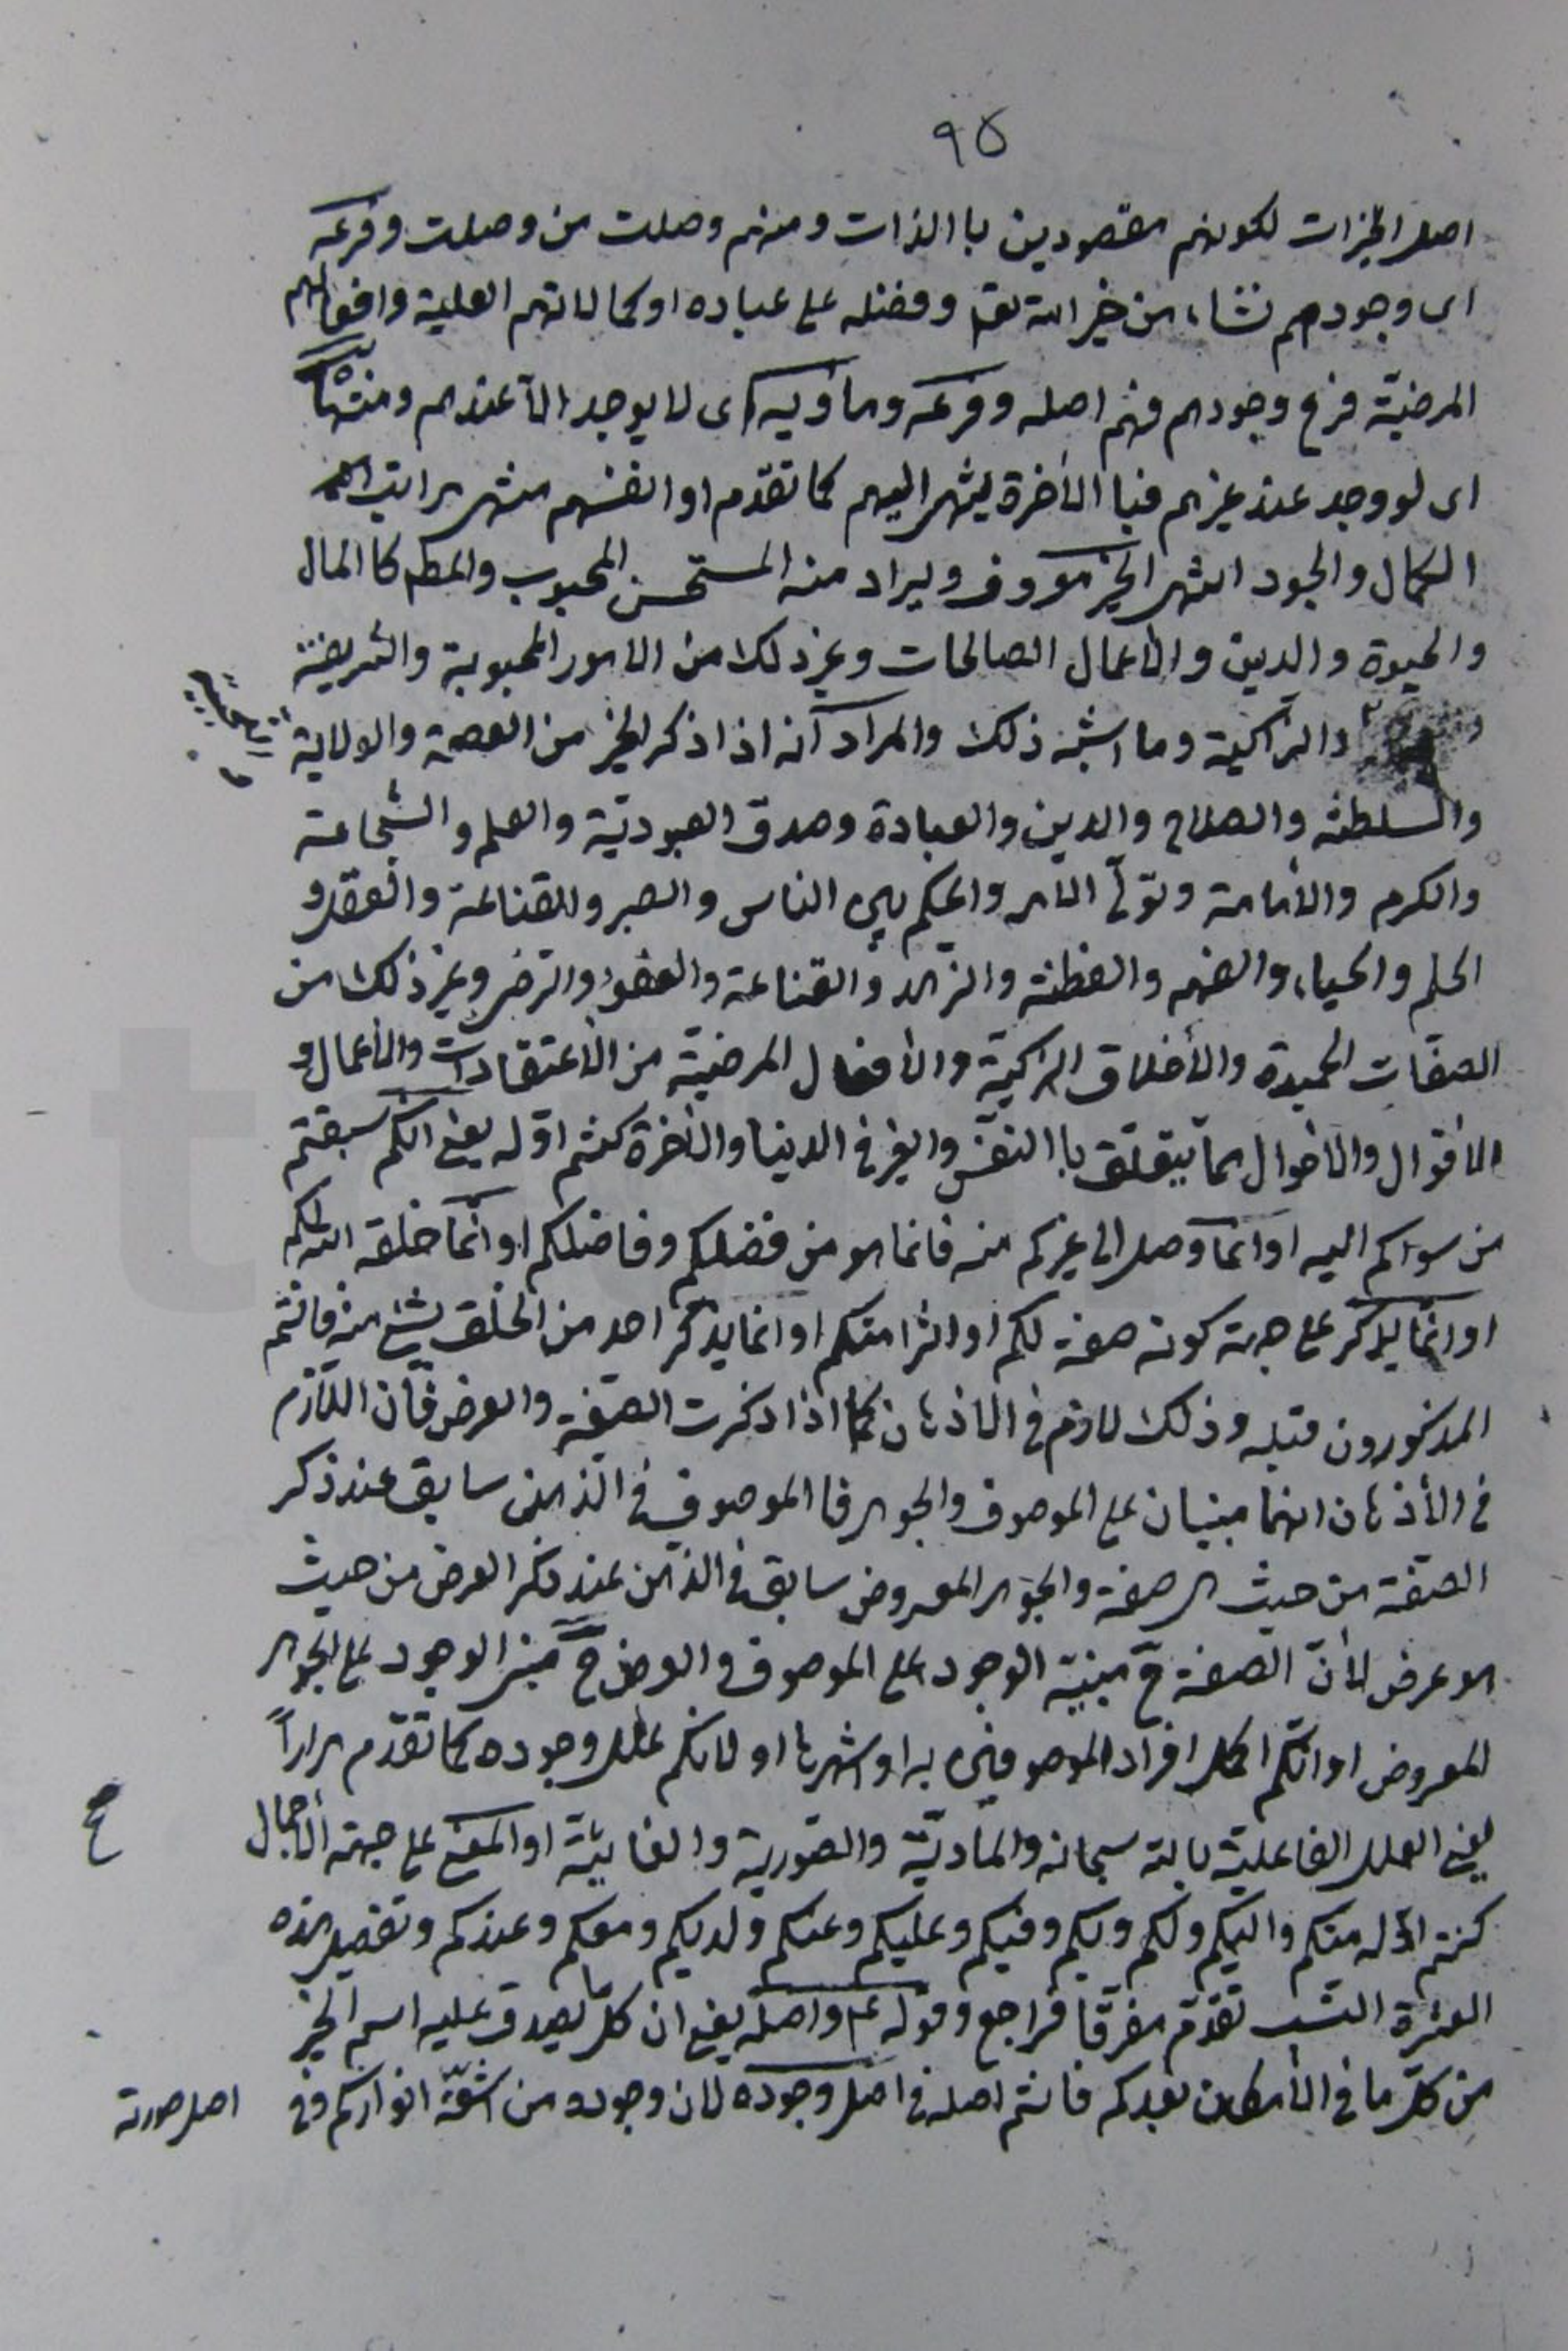 ٩٥
اصل الخيرات لكونهم مقصودين باالذات ومنهم وصلت من وصلت وفرعه
اى وجودهم نشاء من خير الله تعا وفضله على عباده او كمالاتهم العلية وافعالهم
المرضيّة فرع وجودهم فهم اصله وفرعه ومأويه اى لا يوجد الّا عندهم ومنتهاه
اى لو وجد عند غيرهم فباالأخرة ينتهى اليهم كما تقدّم او انفسهم منتهى مراتب
الكمال والجود انتهى الخير معروف ويراد منه المستحسن المحبوب والمط كاالمال
والحيوة والدين والأعمال الصالحات وغير ذلك من الامور المحبوبة والشريفة
والزاكية وما اشبه ذلك والمراد انه اذا ذكر الخير من العصمة والولاية
والسلطنة والصلاح والدين والعبادة وصدق العبوديّة والعلم والشجاعة
والكرم والأمامة وتولّى الأمر والحكم بين الناس والصبر والقناعة والعقل و
الحلم والحياء والفهم والفطنة والزهد والقناعة والعفو والترضى وغير ذلك من
الصفات الحميدة والأخلاق الزكيّة والأفعال المرضيّة من الأعتقادات والأعمال و
الأقوال والأحوال مما يتعلق باالنفس والغير فى الدينا والأخرة كنتم اوّله يعنى انكم سبقتم
من سواكم اليه او انما وصل الى غيركم منه فانما هو من فضلكم وفاضلكم او انّما خلقه الله لكم
او انّما يذكر على جهة كونه صفة لكم او اثرا منكم او انما يذكر احد من الخلق بشئ منه فانتم
المذكورون قبله وذلك لازم فى الأذهان كما اذا ذكرت الصّفة والعرض فانّ اللازم
فى الأذهان انهما مبنيان على الموصوف والجوهر فاالموصوف فى الذهن سابق عند ذكر
الصّفة من حيث هى صفة والجوهر المعروض سابق فى الذهن عند ذكر العرض من حيث
هو عرض لأنّ الصفة ح مبنيّة الوجود على الموصوف والعرض ح مبنى الوجود على الجوهر
المعروض او انكم اكمل افراد الموصوفين به او اشهرها او لانكم علل وجوده كما تقدّم مراراً
يعنى العلل الفاعلية بالله سبحانه والمادّيّة والصّورية والغائيّة او المعنى على جهة الأجمال
كنتم اوّله منكم واليكم ولكم وبكم وفيكم وعليكم وعنكم ولديكم ومعكم وعندكم وتفصيل هذه
العشرة النسب تقدّم مفرقا فراجع وقوله ع واصله يعنى ان كلّ ما يصدق عليه اسم الخير
من كلّ ما فى الأمكان بعدكم فانتم اصله فى اصل وجوده لان وجوده من اشعّة انواركم وفى
اصل صورته